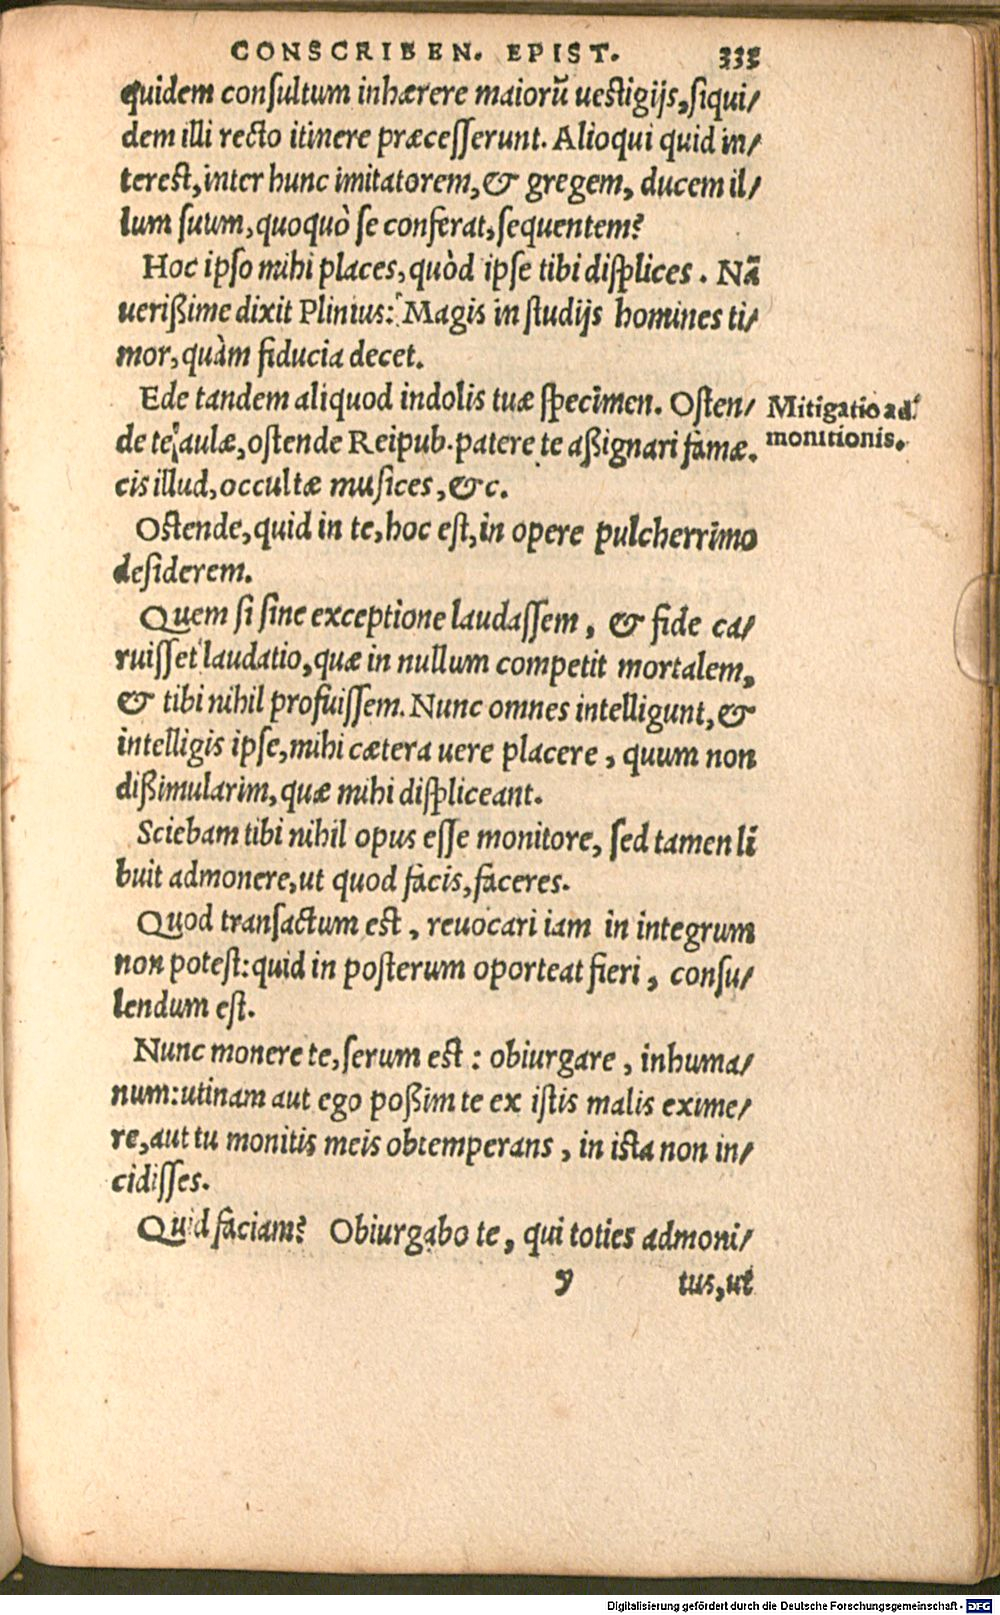 CONSCRIBEN. EPIST. 333
quidem consultum inhærere maiorũ uestigijs, siqui/
dem illi recto itinere præcesserunt. Alioqui quid in/
terest, inter hunc imitatorem, & gregem, ducem il/
lum suum, quoquò se conferat, sequentem?
Hoc ipso mihi places, quòd ipse tibi displices. Nã
uerißime dixit Plinius: Magis in studijs homines ti/
mor, quàm fiducia decet.
Ede tandem aliquod indolis tuæ specimen. Osten/
de te aulæ, ostende Reipub. patere te aßignari famæ.
cis illud, occultæ musices, &c.
Mitigatio ad
monitionis.
Ostende, quid in te, hoc est, in opere pulcherrimo
desiderem.
Quem si sine exceptione laudassem, & fide ca/
ruisset laudatio, quæ in nullum competit mortalem,
& tibi nihil profuissem. Nunc omnes intelligunt, &
intelligis ipse, mihi cætera uere placere, quum non
dißimularim, quæ mihi displiceant.
Sciebam tibi nihil opus esse monitore, sed tamen li
buit admonere, ut quod facis, faceres.
Quod transactum est, reuocari iam in integrum
non potest: quid in posterum oporteat fieri, consu/
lendum est.
Nunc monere te, serum est: obiurgare, inhuma/
num: utinam aut ego poßim te ex istis malis exime/
re, aut tu monitis meis obtemperans, in ista non in/
cidisses.
Quid faciam? Obiurgabo te, qui toties admoni/
y tus, ut
Digitalisierung gefördert durch die Deutsche Forschungsgemeinschaft - DFG